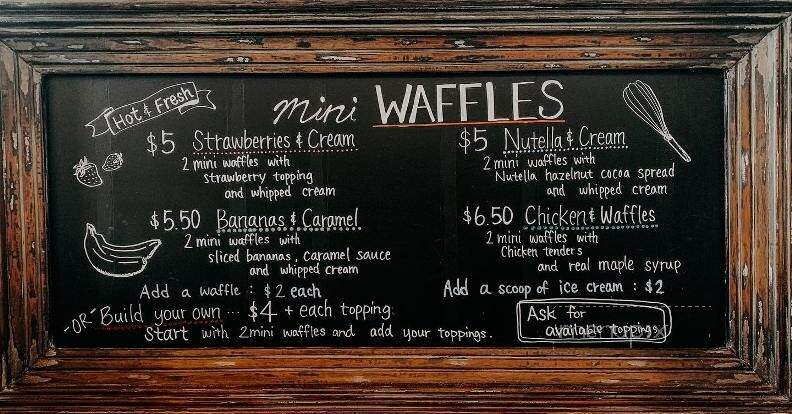 Hot & Fresh
mini WAFFLES
$5 Strawberries & Cream
2 mini waffles with
strawberry topping
and whipped cream
$5.50 Bananas & Caramel
2 mini waffles with
sliced bananas, caramel sauce
and whipped cream
$5 Nutella & Cream
2 mini waffles with
Nutella hazelnut cocoa spread
and whipped cream
$6.50 Chicken & Waffles
2 mini waffles with
Chicken tenders
and real maple syrup
Add a waffle : $2 each
Add a scoop of ice cream : $2
-OR- Build your own ... $4 + each topping
Start with 2 mini waffles and add your toppings.
Ask for
available toppings